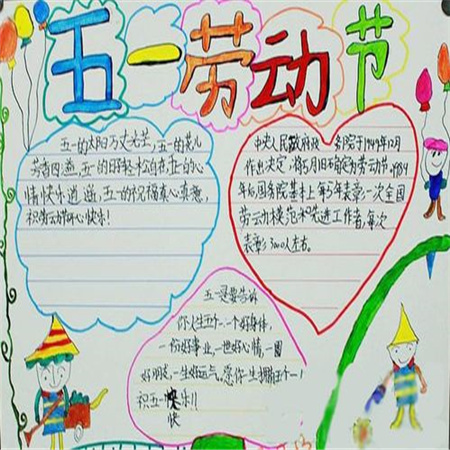 五一劳动节
五一的太阳万丈光芒,五一的花儿
芳香四溢,五一的日子轻松自在,五一的心
情快乐逍遥,五一的祝福真心真意,
祝劳动节开心快乐!
中央人民政府政务院于1949年12月
作出决定,将5月1日确定为劳动节。1989
年后,国务院基本上每5年表彰一次全国
劳动模范和先进工作者,每次
表彰3000人左右。
五一是要告诉
你人生五个一:一个好身体,
一份好事业,一世好心情,一圈
好朋友,一生好运气。愿你一生拥五个一!
祝五一快乐!!
快